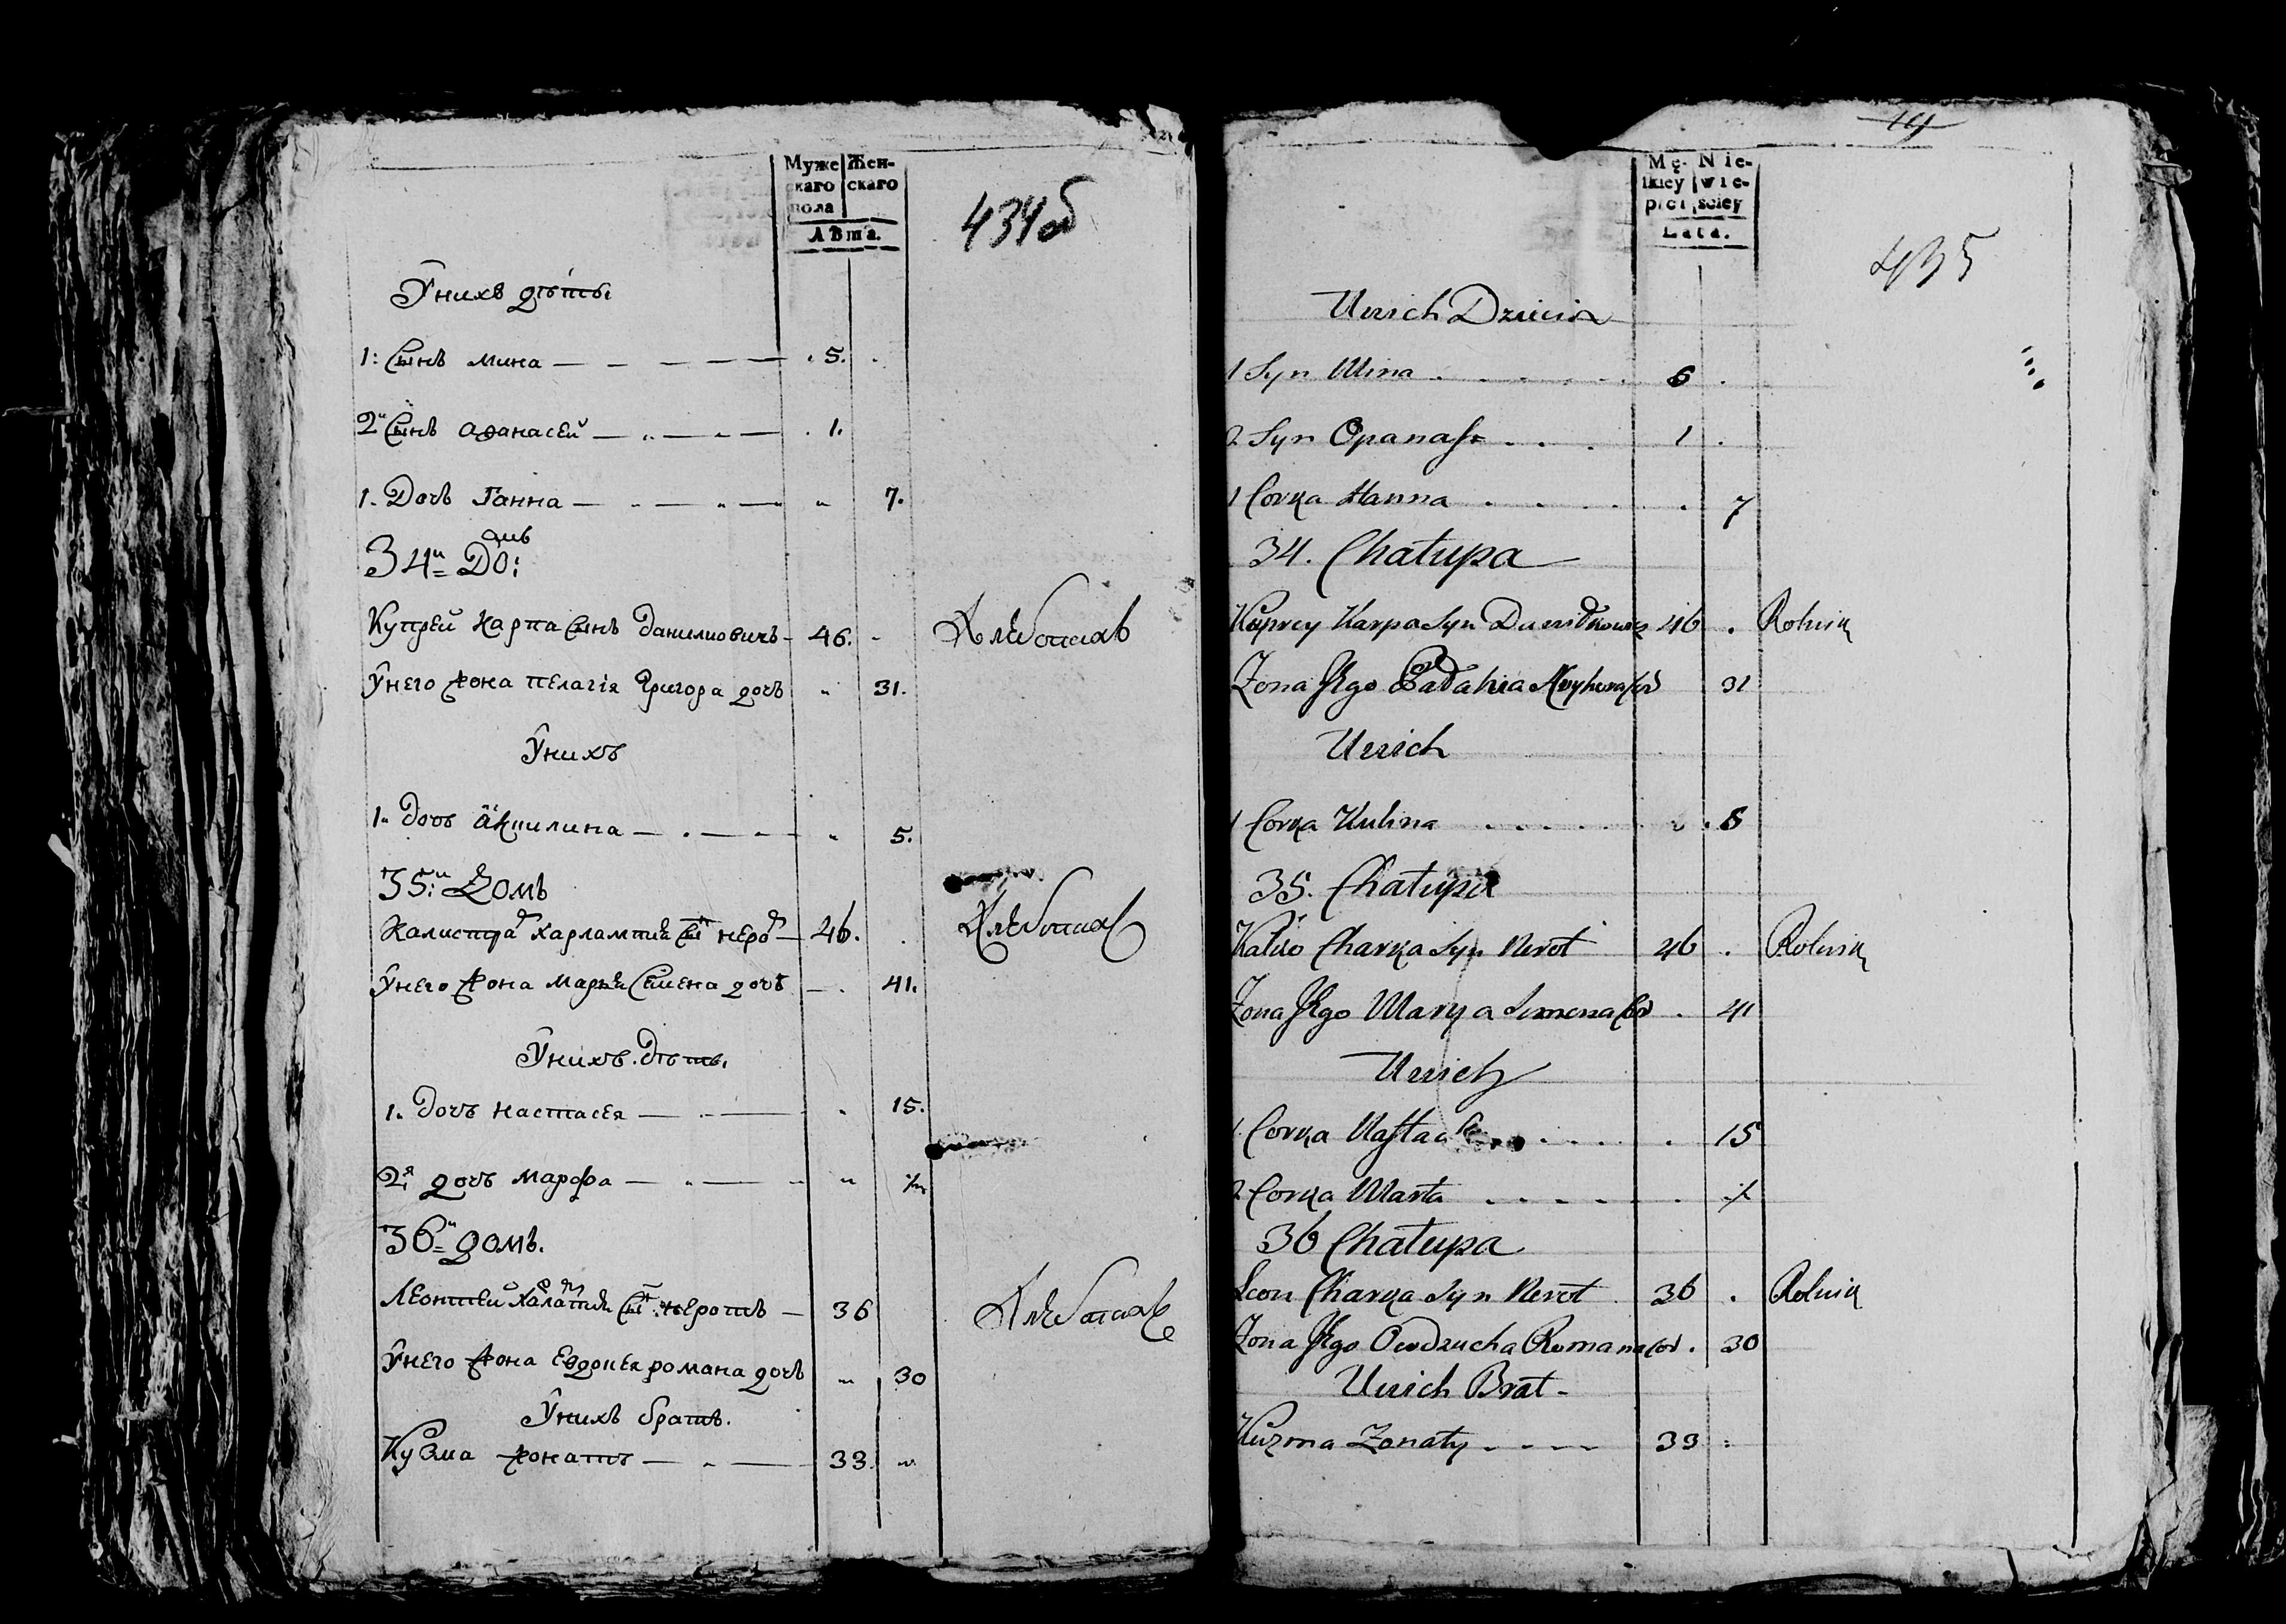 Муже Жен-
скаго скаго
пола
Лѣта.
434об
Унихъ дѣти
1: Сынъ мина 5.
2й Сынъ афанасей 1.
1. Дочь Ганна 7.
34й До: мъ
Купрей карпа Сынъ даниловичъ 46. Хлебопаш
Унего жона пелагія Григора дочь 31.
Унихъ
1. дочь Акилина 5.
35й: Домъ
Калистра харлампия Сын нерод 46. Хлебопаш
Унего жона марья Семена дочь 41.
Унихъ. дѣти.
1. дочь настасея 15.
2я дочь марфа
36й домъ.
Леонтей Харлампия Сын неротъ 36 Хлебопаш
Унего жона Евдокея романа дочь 30
Унихъ братъ.
Кузма жонатъ 33.
19
Mę- Nie-
skiey wie-
płci sciey
Lata.
435
Unich Dzieci
1 Syn Mina 5
2 Syn Opanas 1
1 Corka Hanna 7
34. Chałupa
Kuprey Karpa Syn 46 Rolnik
Zona Jego 31
Unich
1 Corka Kulina 5
35. Chałupa
Charka Syn Nerot 46 Rolnik
Zona Jego Marya Semena Cor 41
Unich
1 Corka 15
2 Corka Marta
36 Chałupa
Leon Charka Syn Nerot 36 Rolnik
Zona Jego Owdzucha Romana Cor. 30
Unich Brat
Kuzma Zonaty 33